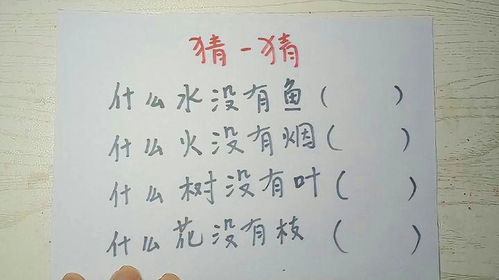 猜一猜
什么水没有鱼（ ）
什么火没有烟（ ）
什么树没有叶（ ）
什么花没有枝（ ）